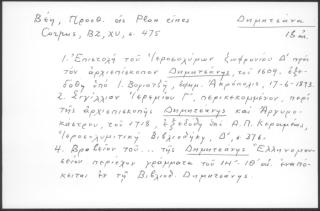 Βέη, Προσθ. εἰς Plan eines Δημητσάνα
Corpus, BZ, XV, σ. 475 18 αἰ.
1. Ἐπιστολὴ τοῦ Ἱεροσολύμων Σωφρονίου Δ' πρὸς
τὸν ἀρχιεπίσκοπον Δημητσάνης, τοῦ 1609, ἐξε-
δόθη ὑπὸ Ι. , ἐφημ. Ἀκρόπολις, 17-6-1893.
2. Σιγίλλιον Ἱερεμίου Γ', περικεκομμένον, περὶ
τῆς ἀρχιεπισκοπῆς Δημητσάνης καὶ Ἀργυρο-
κάστρου, τοῦ 1718, ἐξεδόθη ὑπὸ Α.Π. Κεραμέως,
Ἱεροσολυμιτικὴ Βιβλιοθήκη, Δ', σ. 376.
4. Βραβεῖον τοῦ... τῆς Δημητσάνης Ἑλληνομου-
σείου περιέχον γράμματα τοῦ ΙΗ'- ΙΘ' αἰ. ἐναπό-
κειται ἐν τῇ Βιβλιοθ. Δημητσάνης.